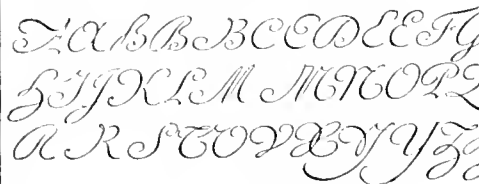 A A B B B C C D E E F G
H I J K L M M N O P Q
R R S T U V X Y Y Z Z